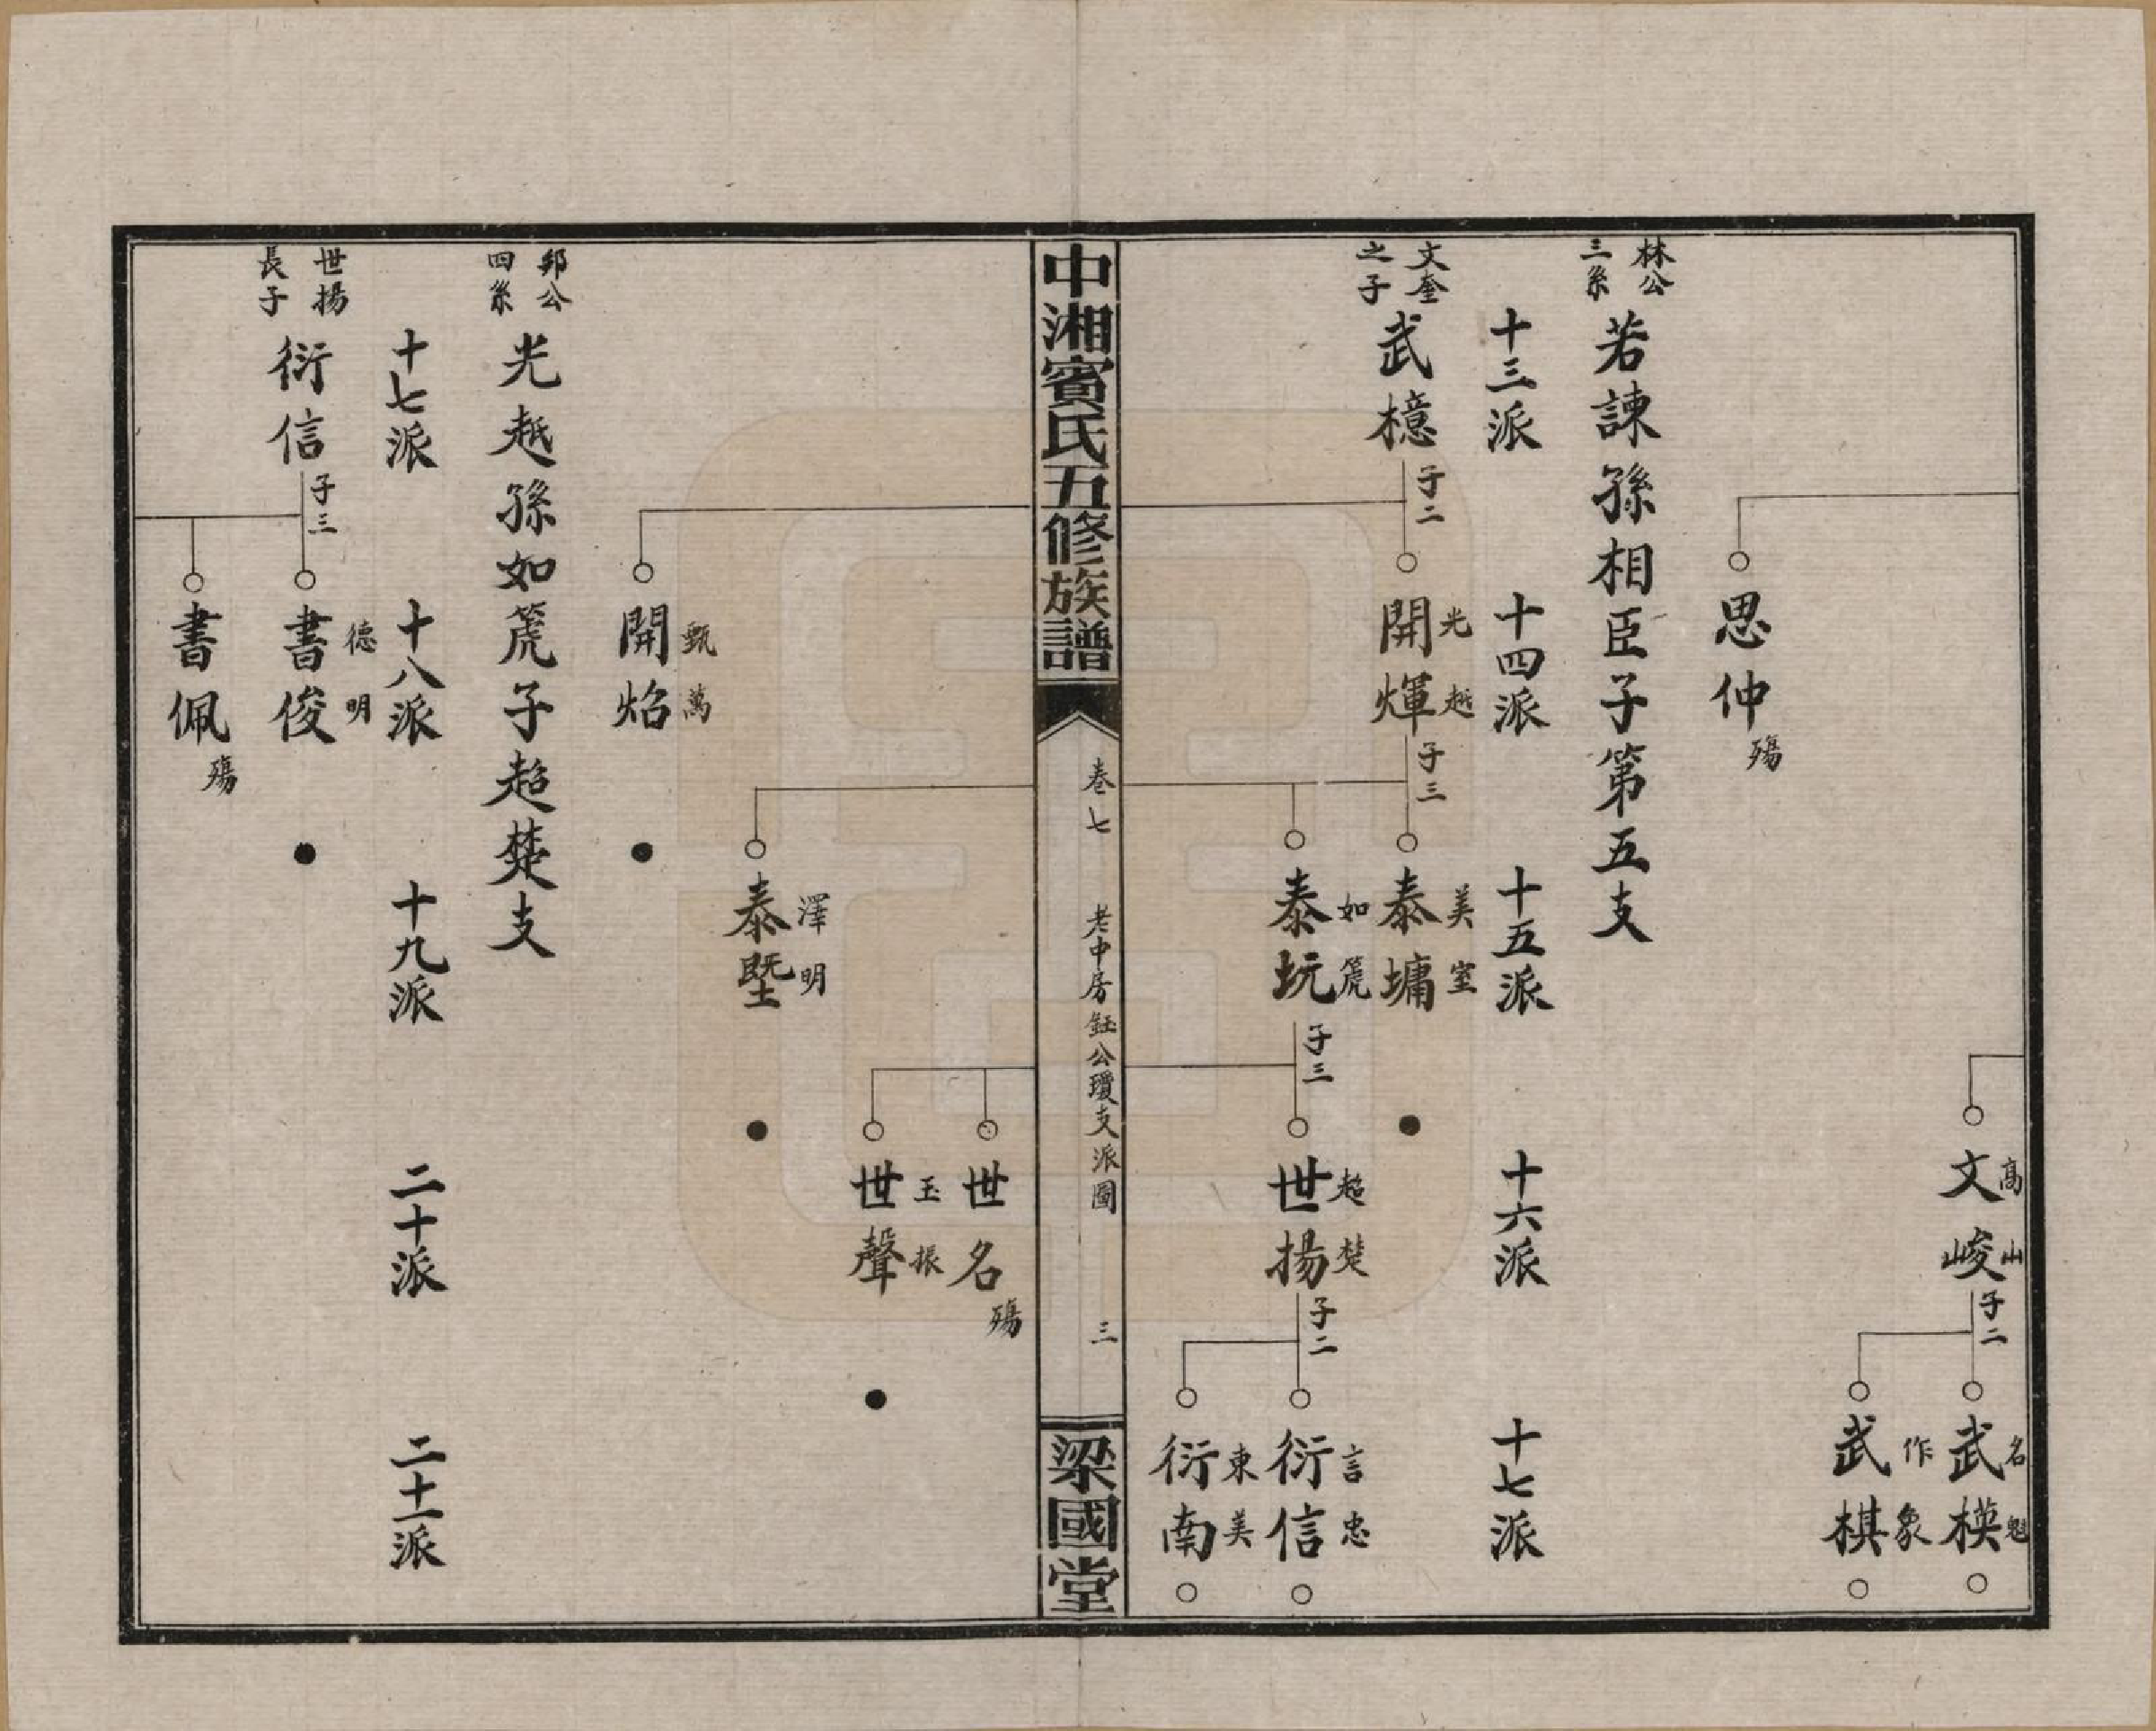 高山
文峻
子二
名魁
武模
作象
武棋
思仲
殤
林公三系
若諫孫相臣子第五支
十三派
十四派
十五派
十六派
十七派
文奎之子
武檍
子二
光越
開煇
子三
美室
泰墉
如箎
泰坃
子三
超楚
世揚
子二
言忠
衍信
東美
衍南
中湘賓氏五修族譜
卷七
老中房鈺公瓊支派圖
三
梁國堂
世名
殤
玉振
世聲
澤明
泰塈
甄萬
開焰
邦公四系
光越孫如箎子超楚支
十七派
十八派
十九派
二十派
二十一派
世揚長子
衍信
子三
德明
書俊
書佩
殤